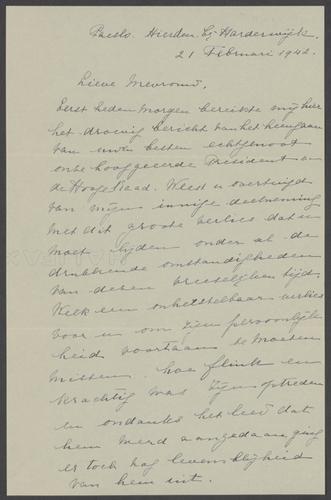 Hierden bij Harderwijk.
21 Februari 1942.
Lieve Mevrouw,
Eerst heden morgen bereikte mij hier
het droevig bericht van het heengaan
van uwen besten echtgenoot
onze hooggeëerde President v
de Hooge Raad. Weest u overtuigd
van mijne innige deelneming
met dit groote verlies dat u
moet lijden onder al de
drukkende omstandigheden
van dezen vreeselijken tijd.
Welk een onherstelbaar verlies
voor u om zijn persoonlijk
heid voortaan te moeten
missen. Hoe flink en
krachtig was zijn optreden
en ondanks het leed dat
hem werd aangedaan ging
er toch nog levensblijheid
van hem uit.